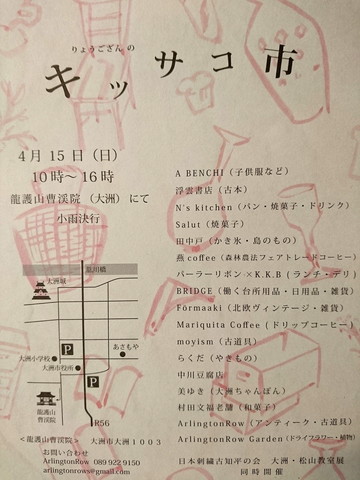 りょうござんの
キッサコ市
4月15日（日）
10時～16時
龍護山曹渓院（大洲）にて
小雨決行
A BENCHI（子供服など）
浮雲書店（古本）
N's kitchen（パン・焼菓子・ドリンク）
Salut（焼菓子）
田中戸（かき氷・島のもの）
燕coffee（森林農法フェアトレードコーヒー）
パーラーリボン×K.K.B（ランチ・デリ）
BRIDGE（働く台所用品・日用品・雑貨）
Formaaki（北欧ヴィンテージ・雑貨）
Mariquita Coffee（ドリップコーヒー）
moyism（古道具）
らくだ（やきもの）
中川豆腐店
美ゆき（大洲ちゃんぽん）
村田文福老舗（和菓子）
ArlingtonRow（アンティーク・古道具）
ArlingtonRow Garden（ドライフラワー・植物）
日本刺繍古知平の会 大洲・松山教室展
同時開催
肱川橋
大洲城
P
あさもや
大洲小学校
大洲市役所
P
龍護山
曹渓院
R56
＜龍護山曹渓院＞ 大洲市大洲1003
お問い合わせ
ArlingtonRow 089 922 9150
arlingtonrows@gmail.com